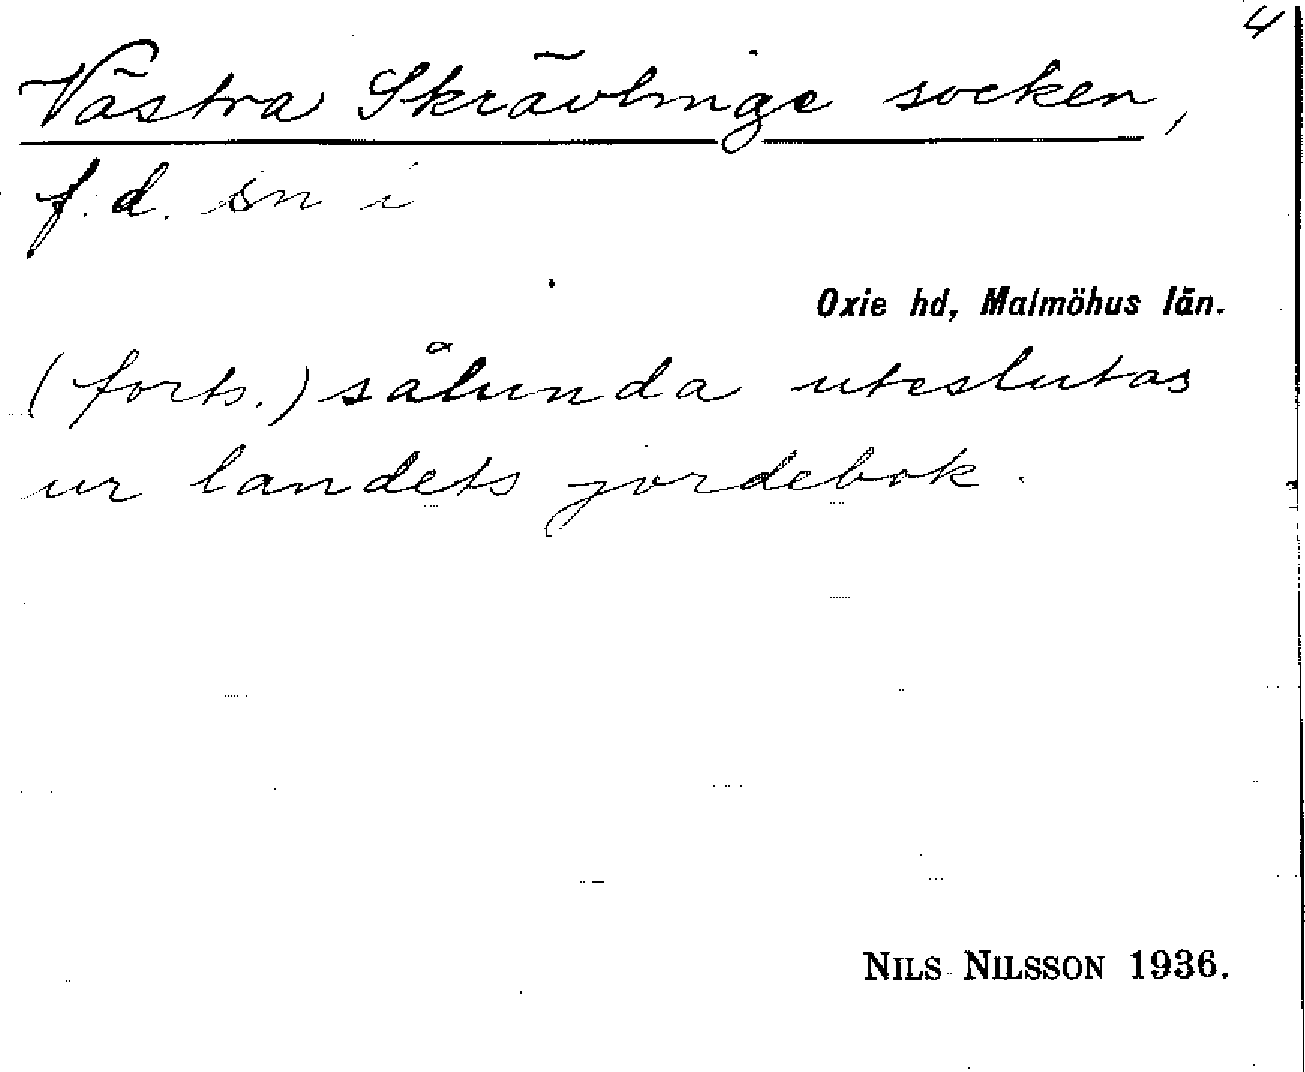 4
Västra Skrävlinge socken,
f.d. sn i
Oxie hd, Malmöhus län.
(forts.) sålunda uteslutas
ur landets jordebok.
NILS NILSSON 1936.